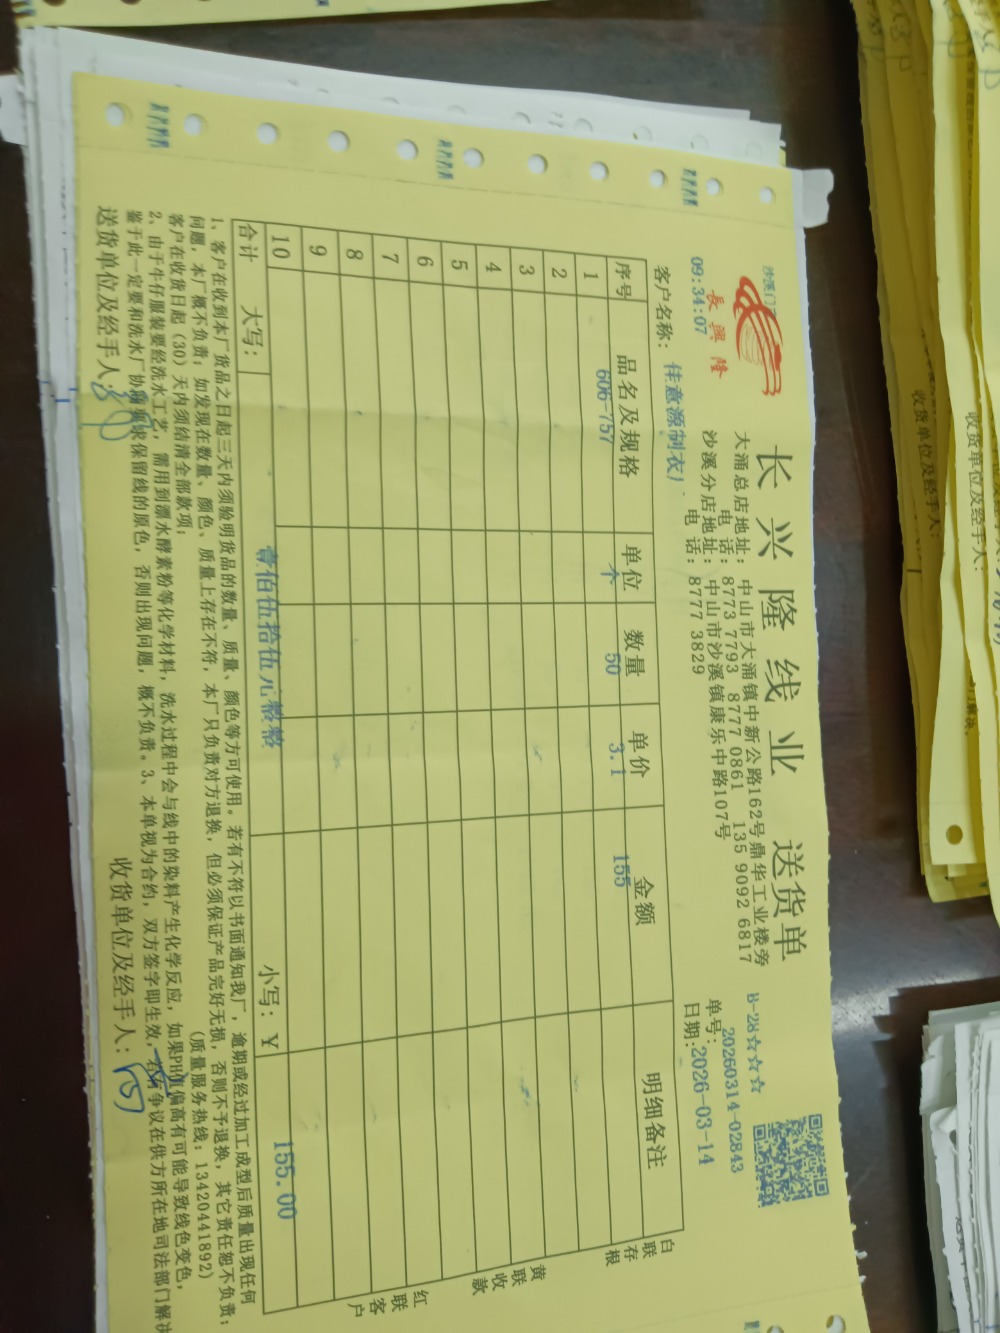 长兴隆线业 送货单
長興隆
大涌总店地址:中山市大涌镇中新公路162号鼎华工业楼旁
电话:8773 7793 8777 0861 135 9092 6817
沙溪分店地址:中山市沙溪镇康乐中路107号
电话:8777 3829
沙溪门
09:34:07
B-28☆☆☆
单号:20260314-02843
日期:2026-03-14
客户名称:佳意源制衣厂
序号 品名及规格 单位 数量 单价 金额 明细备注
1 606-757 个 50 3.1 155
2
3
4
5
6
7
8
9
10
合计 大写:壹佰伍拾伍元整整 小写:¥ 155.00
白联存根
黄联收款
红联客户
1、客户在收到本厂货品之日起三天内须验明货品的数量、质量、颜色等方可使用。若有不符以书面通知我厂,逾期或经过加工成型后质量出现任何
问题,本厂概不负责;如发现在数量、颜色、质量上存在不符,本厂只负责对方退换,但必须保证产品完好无损,否则不予退换,其它责任恕不负责;
客户在收货日起(30)天内须结清全部款项; (质量服务热线:13420441892)
2、由于牛仔服装要经洗水工艺,需用到漂水酵素粉等化学材料,洗水过程中会与线中的染料产生化学反应,如果PH值偏高有可能导致线色变色,
鉴于此一定要和洗水厂协调要求保留线的原色,否则出现问题,概不负责。3、本单视为合约,双方签字即生效,若有争议在供方所在地司法部门解决
送货单位及经手人:
收货单位及经手人:
收货单位及经手人:
收货单位及经手人: